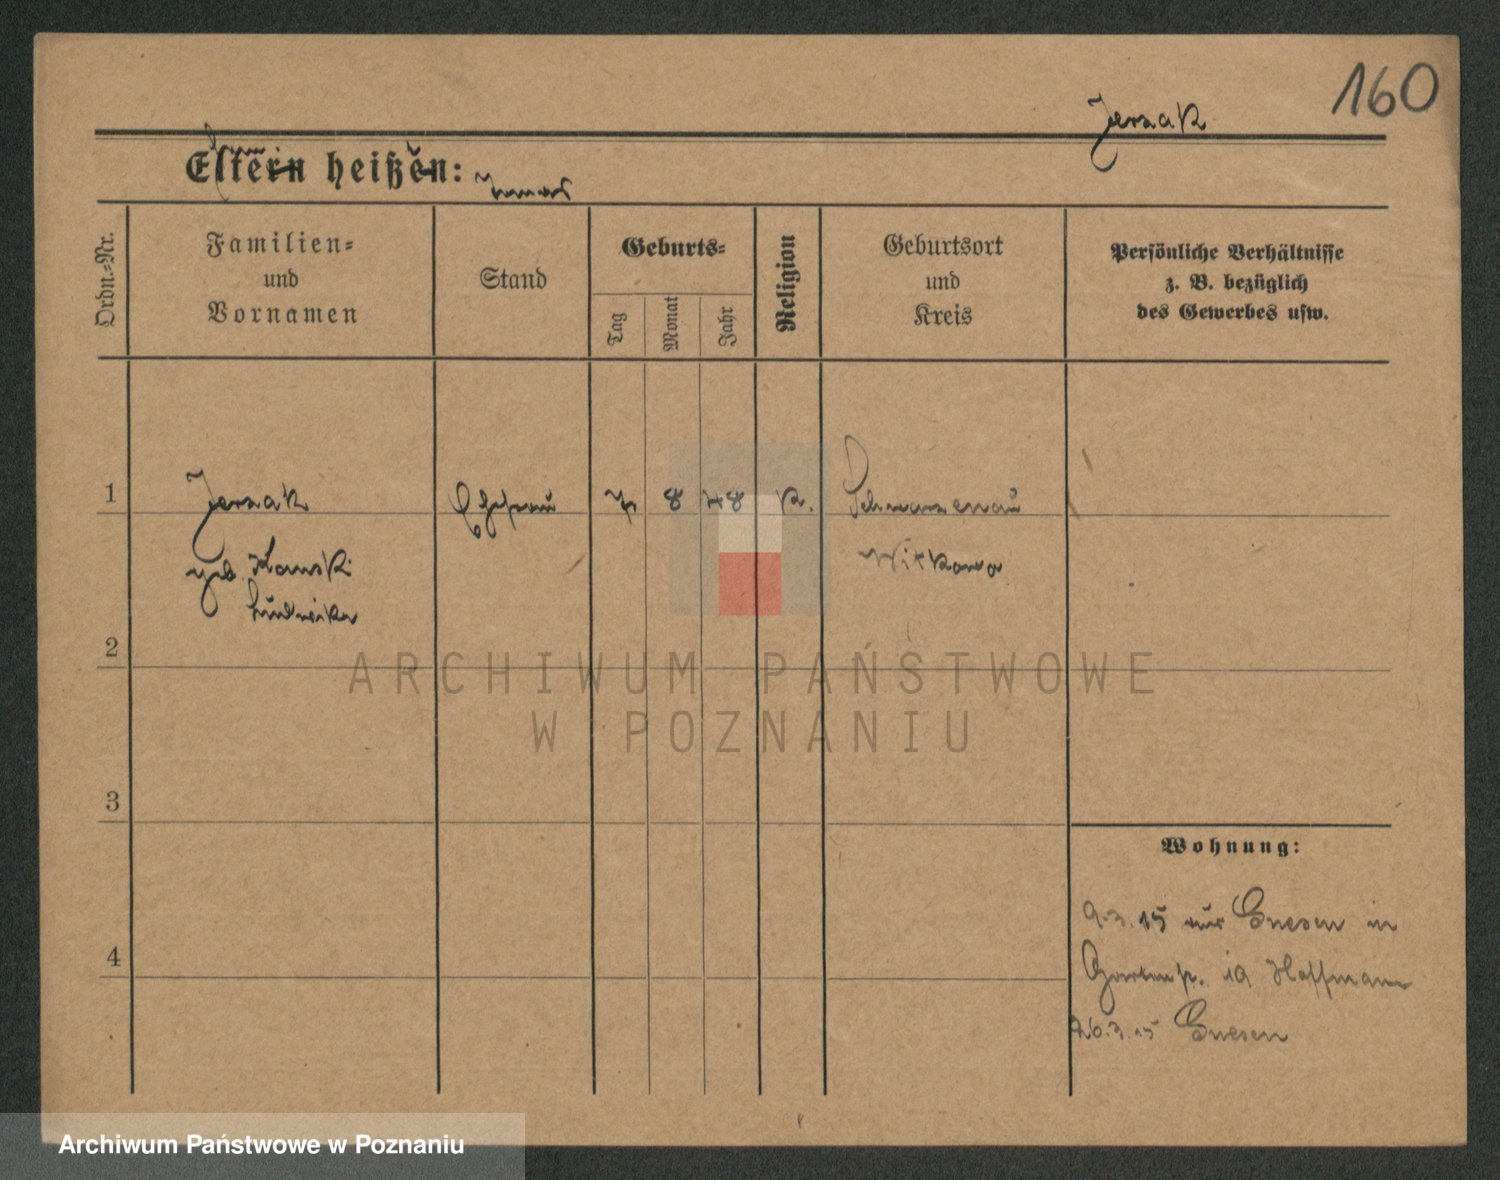 160
Jerzak
Eltern heißen:
Ordn.=Nr.
Familien=
und
Vornamen
Stand
Geburts=
Tag
Monat
Jahr
Religion
Geburtsort
und
Kreis
Persönliche Verhältnisse
z. B. bezüglich
des Gewerbes usw.
1
Jerzak
Ehefrau
7
8
78
K.
Schwarzenau
geb.
Witkowo
Ludwika
2
ARCHIWUM PAŃSTWOWE
W POZNANIU
3
Wohnung:
9.3.15 aus Gnesen in
4
Gartenstr. 19 Hoffmann
26.3.15 Gnesen
Archiwum Państwowe w Poznaniu